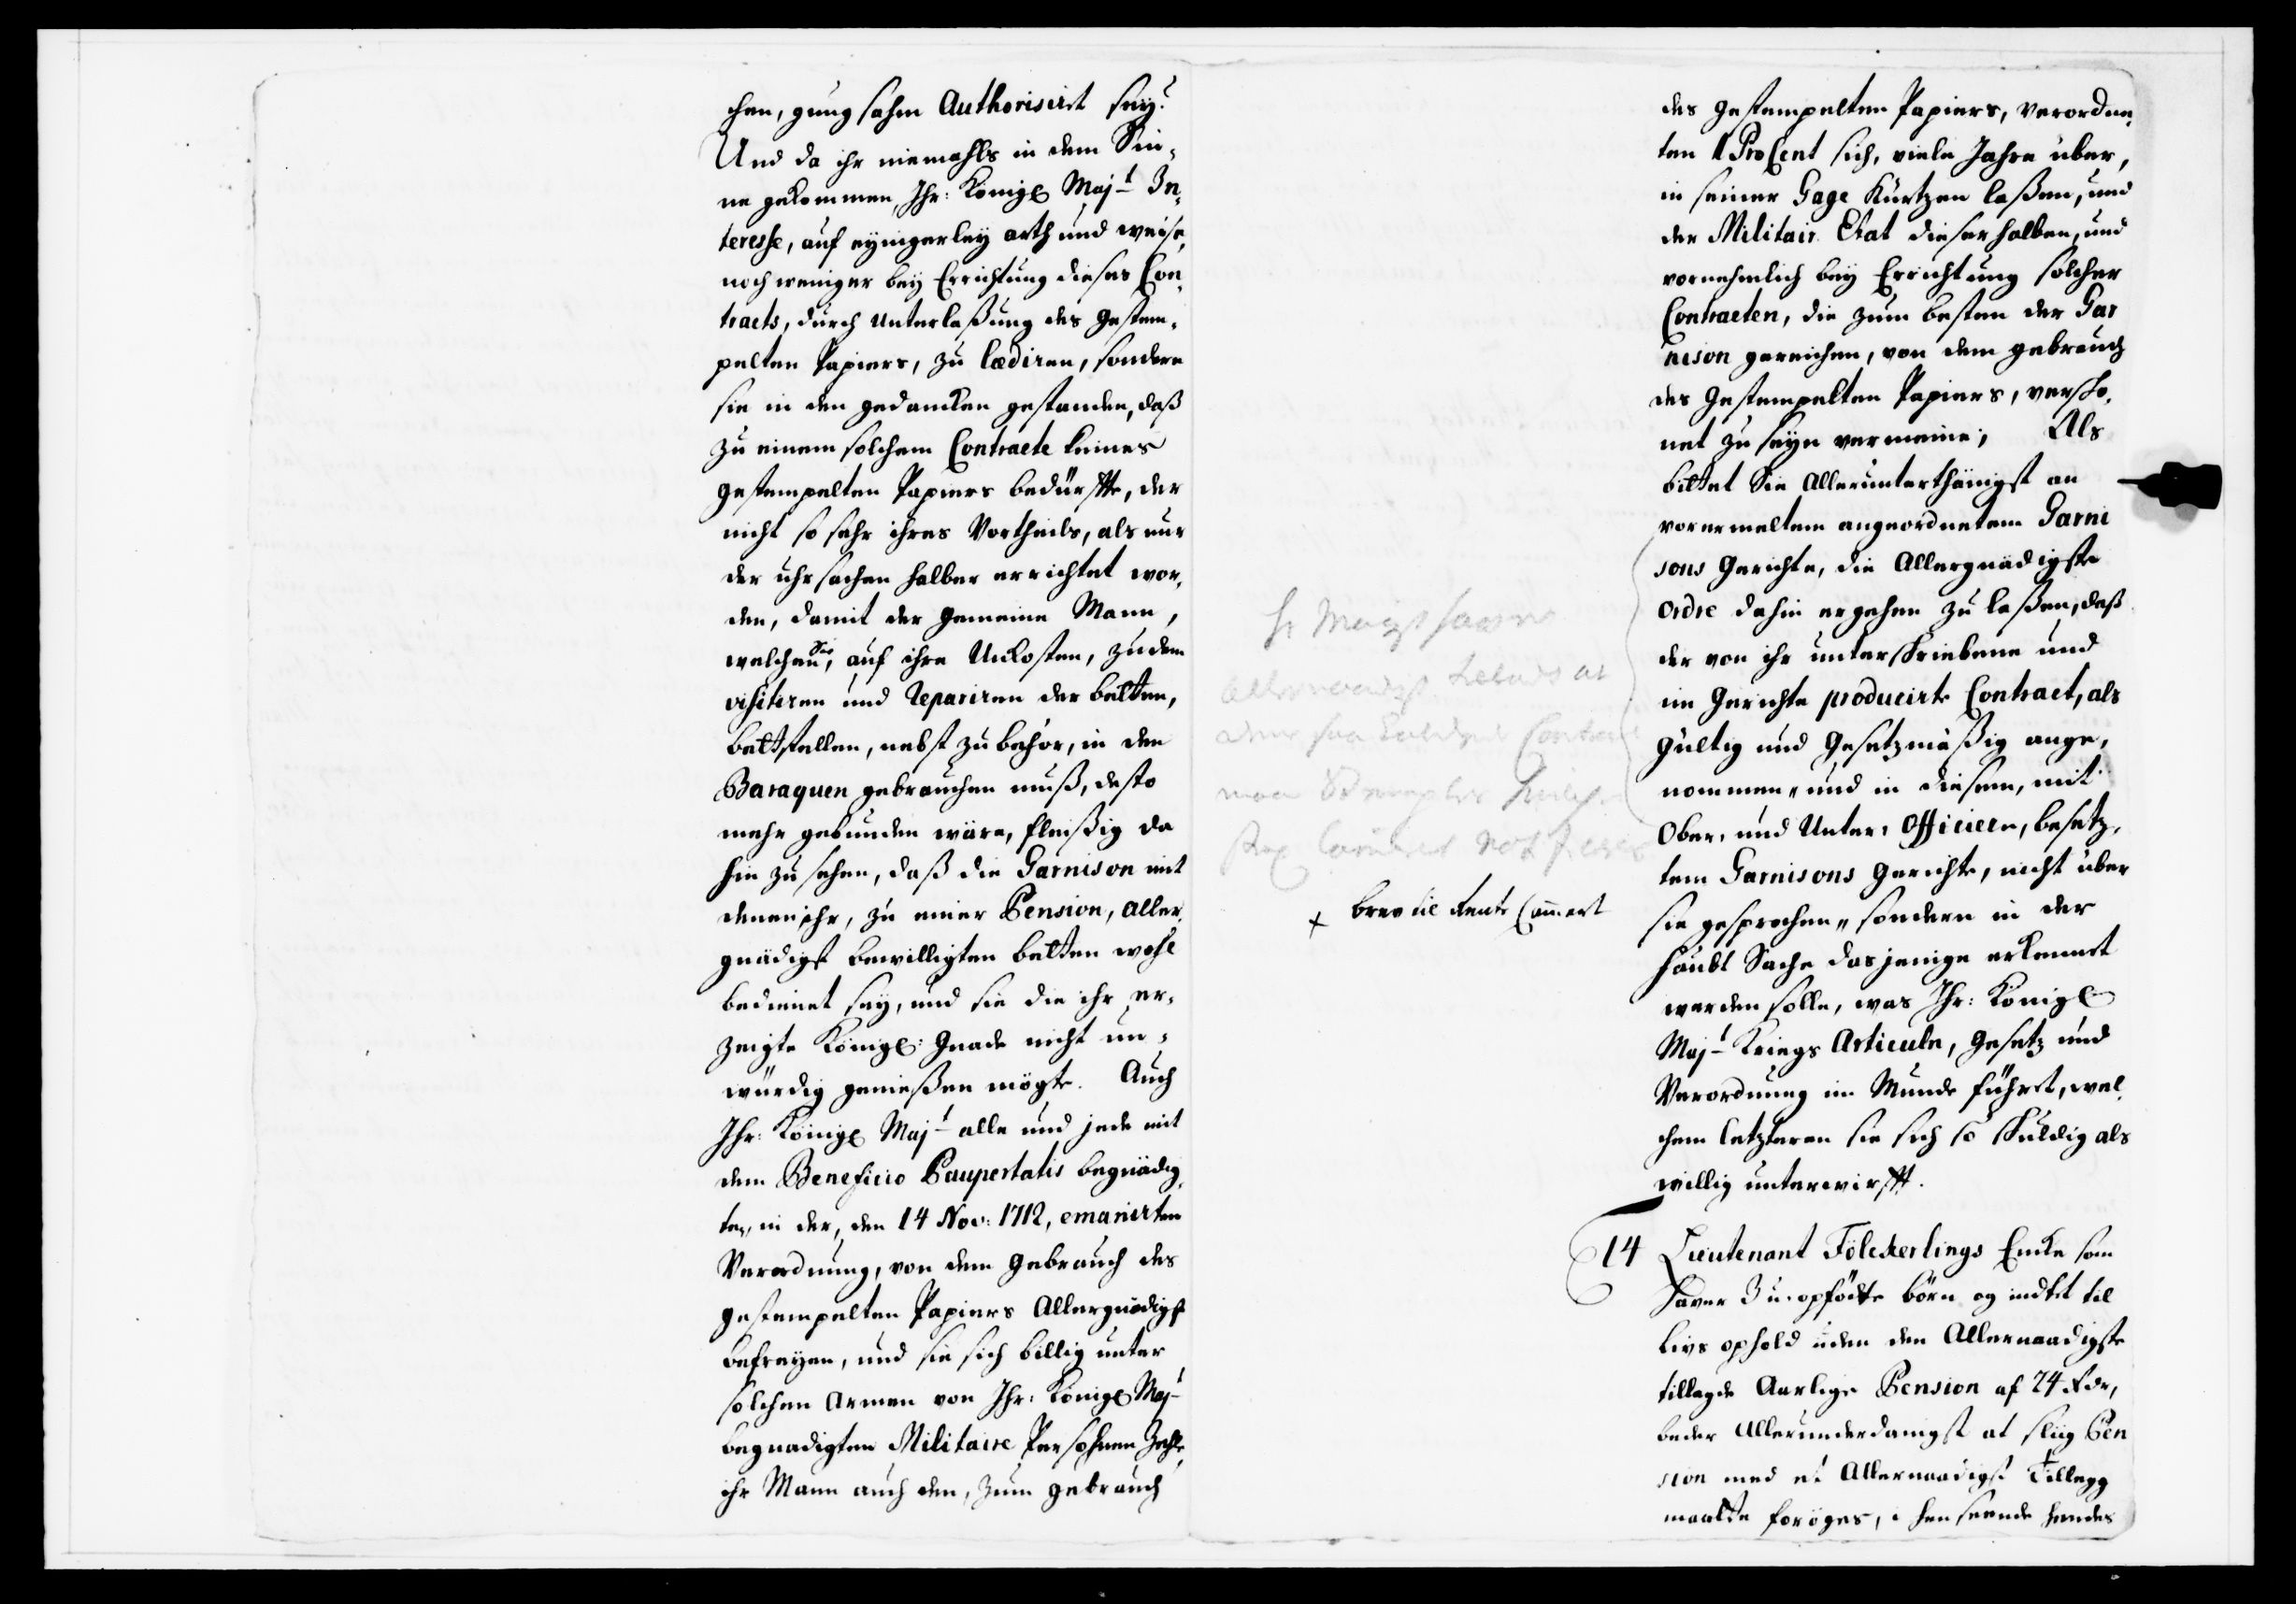 chen, gnugsahm Authorisirt sey?
Und da ihr niemahls in dem Sin¬
ne gekommen, Ihr: Königl Majt In¬
teresse, auf eynigerley arth und weise,
noch weniger bey Errichtung dieses Con¬
tracts, durch unterlaßung des gestem¬
pelten Papiers, zu lædiren, sondern
sie in den gedancken gestanden, daß
zu einem solchem Contracte keines
gestempelten Papiers bedürffte, der
nicht so sehr ihres Vortheils, als nur
der uhrsachen halber errichtet wor¬
den, damit der gemeine Mann,
welchen Sie, auf ihre Unkosten, zu dem
visitiren und Repariren der betten,
bettstellen, nebst zubehör, in den
Baraquen gebrauchen muß, desto
mehr gebunden wäre, fleißig da
hin zu sehen, daß die Garnison mit
denen ihr, zu einer Pension, aller¬
gnädigst bewilligten betten wohl
bedienet sey, und sie die ihr er¬
zeigte Königl: Gnade nicht un¬
würdig genießen mögte. Auch
Ihr: Königl Majt alle und jede mit
dem Beneficio Paupertatis begnädig¬
ten, in der, den 14 Nov: 1712, emanirten
Verordnung, von dem gebrauch des
gestempelten Papiers Allergnädigst
befreyen, und sie sich billig unter
solchen Armen von Ihr: Königl Majt
begnadigten Militaire Persohnen zehle,
ihr Mann auch den, zum gebrauch
des gestempelten Papiers, verordne¬
ten 1 ProCent sich, viele Jahre über,
in seiner Gage kürtzen laßen, und
der Militair Etat dieserhalben, und
vornehmlich bey Errichtung solcher
Contracten, die zum besten der Gar
nison gereichen, von dem gebrauch
des gestempelten Papiers, verscho¬
net zu seyn vermeine; Als
bittet Sie Allerunterthänigst an
vorermeltem angeordnetem Garni
sons Gerichte, die Allergnädigste
Ordre dahin ergehen zu laßen, daß
der von ihr unterschriebene und
im Gerichte producirte Contract, als
gültig und Gesetzmäßig ange¬
nommen, und in diesem, mit
Ober- und Unter-Officiern, besetz¬
tem Garnisons Gerichte, nicht über
sie gesprochen, sondern in der
Haubt Sache dasjenige erkennet
werden solle, was Ihr: Königl
Majt Kriegs Articuln, Gesetz und
Verordnung im Munde führet, wel¬
chem letzteren sie sich so schuldig als
willig unterwirfft.
+ brev til Rente Cammert
14 Lieutenant Fölckerlings Encke som
haver 3 u-opfödte börn og indtet til
livs ophold uden den Allernaadigste
tillagde Aarlige Pension af 24 Rdr,
beder Allerunderdanigst at slig Pen
sion med et Allernaadigst Tillegg
maatte foröges, i henseende hendes